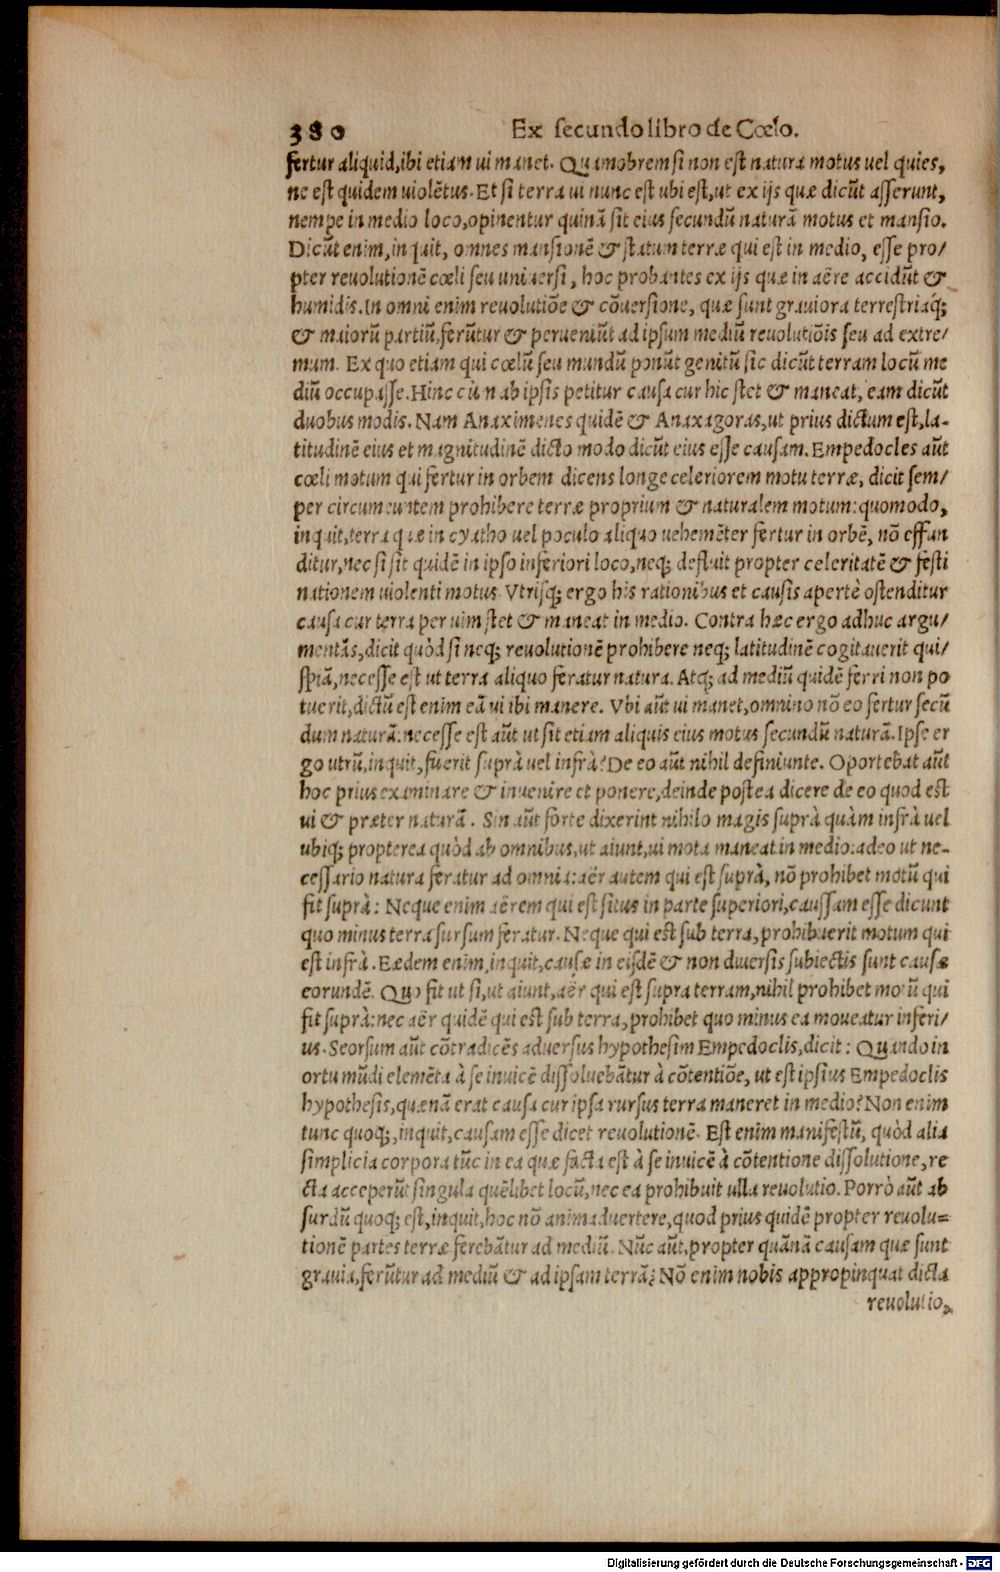 380 Ex secundo libro de Cœlo.
fertur aliquid, ibi etiam ui manet. Quamobrem si non est natura motus uel quies,
ne est quidem uiolẽtus. Et si terra ui nunc est ubi est, ut ex ijs quæ dicũt asserunt,
nempe in medio loco, opinentur quinã sit eius secundũ naturã motus et mansio.
Dicũt enim, inquit, omnes mansionẽ & statum terræ qui est in medio, esse pro/
pter reuolutionẽ cœli seu uniuersi, hoc probantes ex ijs quæ in aëre accidũt &
humidis. In omni enim reuolutiõe & cõuersione, quæ sunt grauiora terrestriaq́;
& maiorũ partiũ, ferũtur & perueniũt ad ipsum mediũ reuolutiõis seu ad extre/
mum. Ex quo etiam qui cœlũ seu mundũ ponũt genitũ sic dicũt terram locũ me
diũ occupasse. Hinc cùm ab ipsis petitur causa cur hic stet & maneat, eam dicũt
duobus modis. Nam Anaximenes quidẽ & Anaxagoras, ut prius dictum est, la-
titudinẽ eius et magnitudinẽ dicto modo dicũt eius esse causam. Empedocles aũt
cœli motum qui fertur in orbem dicens longe celeriorem motu terræ, dicit sem/
per circumeuntem prohibere terræ proprium & naturalem motum: quomodo,
inquit, terra quæ in cyatho uel poculo aliquo uehemẽter fertur in orbẽ, nõ effun
ditur, nec si sit quidẽ in ipso inferiori loco, neq; defluit propter celeritatẽ & festi
nationem uiolenti motus. Vtrisq; ergo his rationibus et causis apertè ostenditur
causa cur terra per uim stet & maneat in medio. Contra hæc ergo adhuc argu/
mentãs, dicit quòd si neq; reuolutionẽ prohibere neq; latitudinẽ cogitauerit qui/
spiã, necesse est ut terra aliquo feratur natura. Atq; ad mediũ quidẽ ferri non po
tuerit, dictũ est enim eã ui ibi manere. Vbi aũt ui manet, omnino nõ eo fertur secũ
dum naturã: necesse est aũt ut sit etiam aliquis eius motus secundũ naturã. Ipse er
go utrũ, inquit, fuerit suprà uel infrà? De eo aũt nihil definiunte. Oportebat aũt
hoc prius examinare & inuenire et ponere, deinde postea dicere de eo quod est
ui & præter naturã. Sin aũt forte dixerint nihilo magis suprà quàm infrà uel
ubiq; propterea quòd ab omnibus, ut aiunt, ui mota maneat in medio: adeo ut ne-
cessario natura feratur ad omnia: aër autem qui est suprà, nõ prohibet motũ qui
fit suprà: Neque enim aërem qui est situs in parte superiori, caussam esse dicunt
quo minus terra sursum feratur. Neque qui est sub terra, prohibuerit motum qui
est infrà. Eædem enim, inquit, causæ in eisdẽ & non diuersis subiectis sunt causæ
eorundẽ. Quo fit ut si, ut aiunt, aër qui est supra terram, nihil prohibet motũ qui
fit suprà: nec aër quidẽ qui est sub terra, prohibet quo minus ea moueatur inferi/
us. Seorsum aũt cõtradicẽs aduersus hypothesim Empedoclis, dicit: Quando in
ortu mũdi elemẽta à se inuicẽ dissoluebãtur à cõtentiõe, ut est ipsius Empedoclis
hypothesis, quænã erat causa cur ipsa rursus terra maneret in medio? Non enim
tunc quoq;, inquit, causam esse dicet reuolutionẽ. Est enim manifestũ, quòd alia
simplicia corpora tũc in ea quæ facta est à se inuicẽ à cõtentione dissolutione, re
cta acceperũt singula quẽlibet locũ, nec ea prohibuit ulla reuolutio. Porrò aũt ab
surdũ quoq; est, inquit, hoc nõ animaduertere, quod prius quidẽ propter reuolu=
tionẽ partes terræ ferebãtur ad mediũ. Nũc aũt, propter quãnã causam quæ sunt
grauia, ferũtur ad mediũ & ad ipsam terrã? Nõ enim nobis appropinquat dicta
reuolutio,
Digitalisierung gefördert durch die Deutsche Forschungsgemeinschaft - DFG